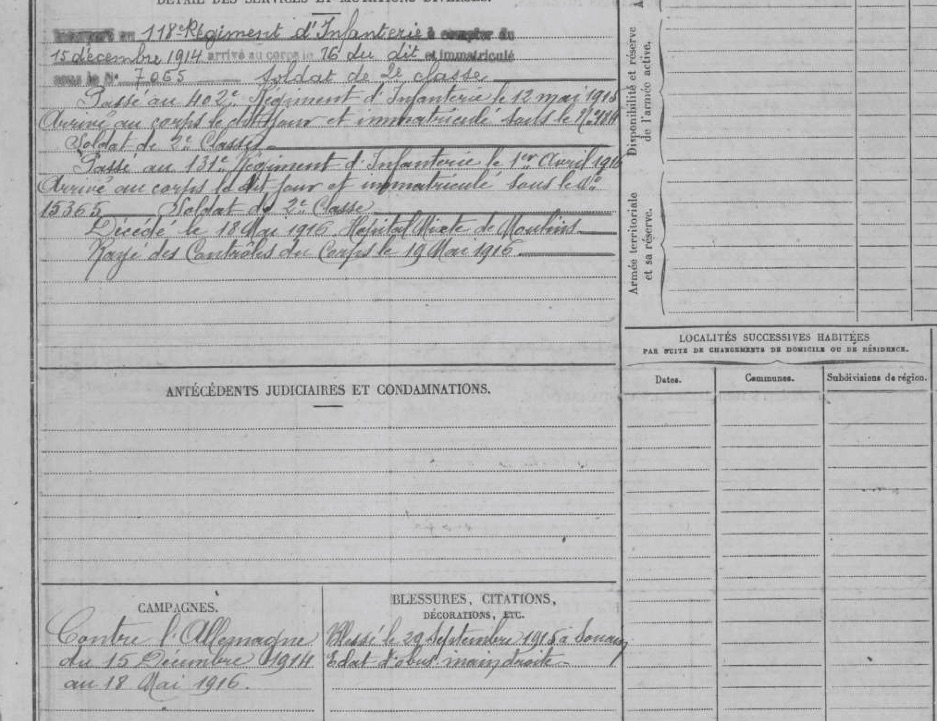 DÉTAIL DES SERVICES ET MUTATIONS DIVERSES.
Incorporé au 118e Régiment d'Infanterie à compter du
15 décembre 1914 arrivé au corps le 16 du dit et immatriculé
sous le No 7065 Soldat de 2e classe
Passé au 402e Régiment d'Infanterie le 12 mai 1915
Arrivé au corps le dit jour et immatricule sous le No
Soldat de 2e Classe
Passé au 131e Régiment d'Infanterie le 1er Avril 1916
Arrivé au corps le dit jour et immatriculé sous le No
15365 Soldat de 2e Classe
Décédé le 18 Mai 1916 Hôpital Mixte de Moulins
Rayé des Contrôles du Corps le 19 Mai 1916
ANTÉCÉDENTS JUDICIAIRES ET CONDAMNATIONS.
CAMPAGNES.
Contre l'Allemagne
du 15 Décembre 1914
au 18 Mai 1916.
BLESSURES, CITATIONS,
DÉCORATIONS, ETC.
Blessé le 29 Septembre 1915 à Souain
Eclat d'obus main droite
Disponibilité et réserve
de l'armée active.
Armée territoriale
et sa réserve.
LOCALITÉS SUCCESSIVES HABITÉES
PAR SUITE DE CHANGEMENTS DE DOMICILE OU DE RÉSIDENCE.
Dates. Communes. Subdivisions de région.